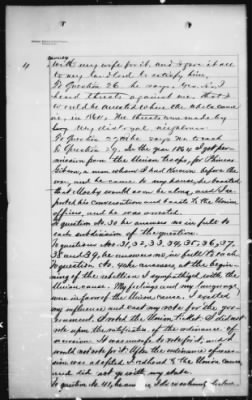 4
money
with my wife for it, and I gave it all
to my landlord to satisfy him.
To Question 26 he says, Yes, Sir, I
heard threats against me, that I
would be arrested
in 1861. The threats were made by
my disloyal neighbors.
To Question 27 he says No to each
To Question 29. In the year 1864 I got per-
mission from the Union troops, for Phineas
a man whom I had known before the
war, and he came to my house, he boasted
that Mosby would soon be along, and I re-
ported his conversation and to the Union
officers, and he was arrested.
To question No. 30 he answers no in full to
each subdivision of the question.
To questions Nos. 31, 32, 33, 34, 35, 36, 37,
38 and 39, he answers no, in full to each.
To question No. 40 he answers, at the begin-
ning of the rebellion I sympathized with the
Union cause. My feelings and my language
were in favor of the Union cause. I exerted
my influence and cast my vote for the gov-
ernment. I voted the Union ticket. I did not
vote upon the ratification of the ordinance of
secession. It was unsafe to vote for it, and I
would not vote for it. After the ordinance of seces-
sion was adopted I adhered to the Union cause,
and did not go with my state.
To question No. 41, he answers I do solemnly declare